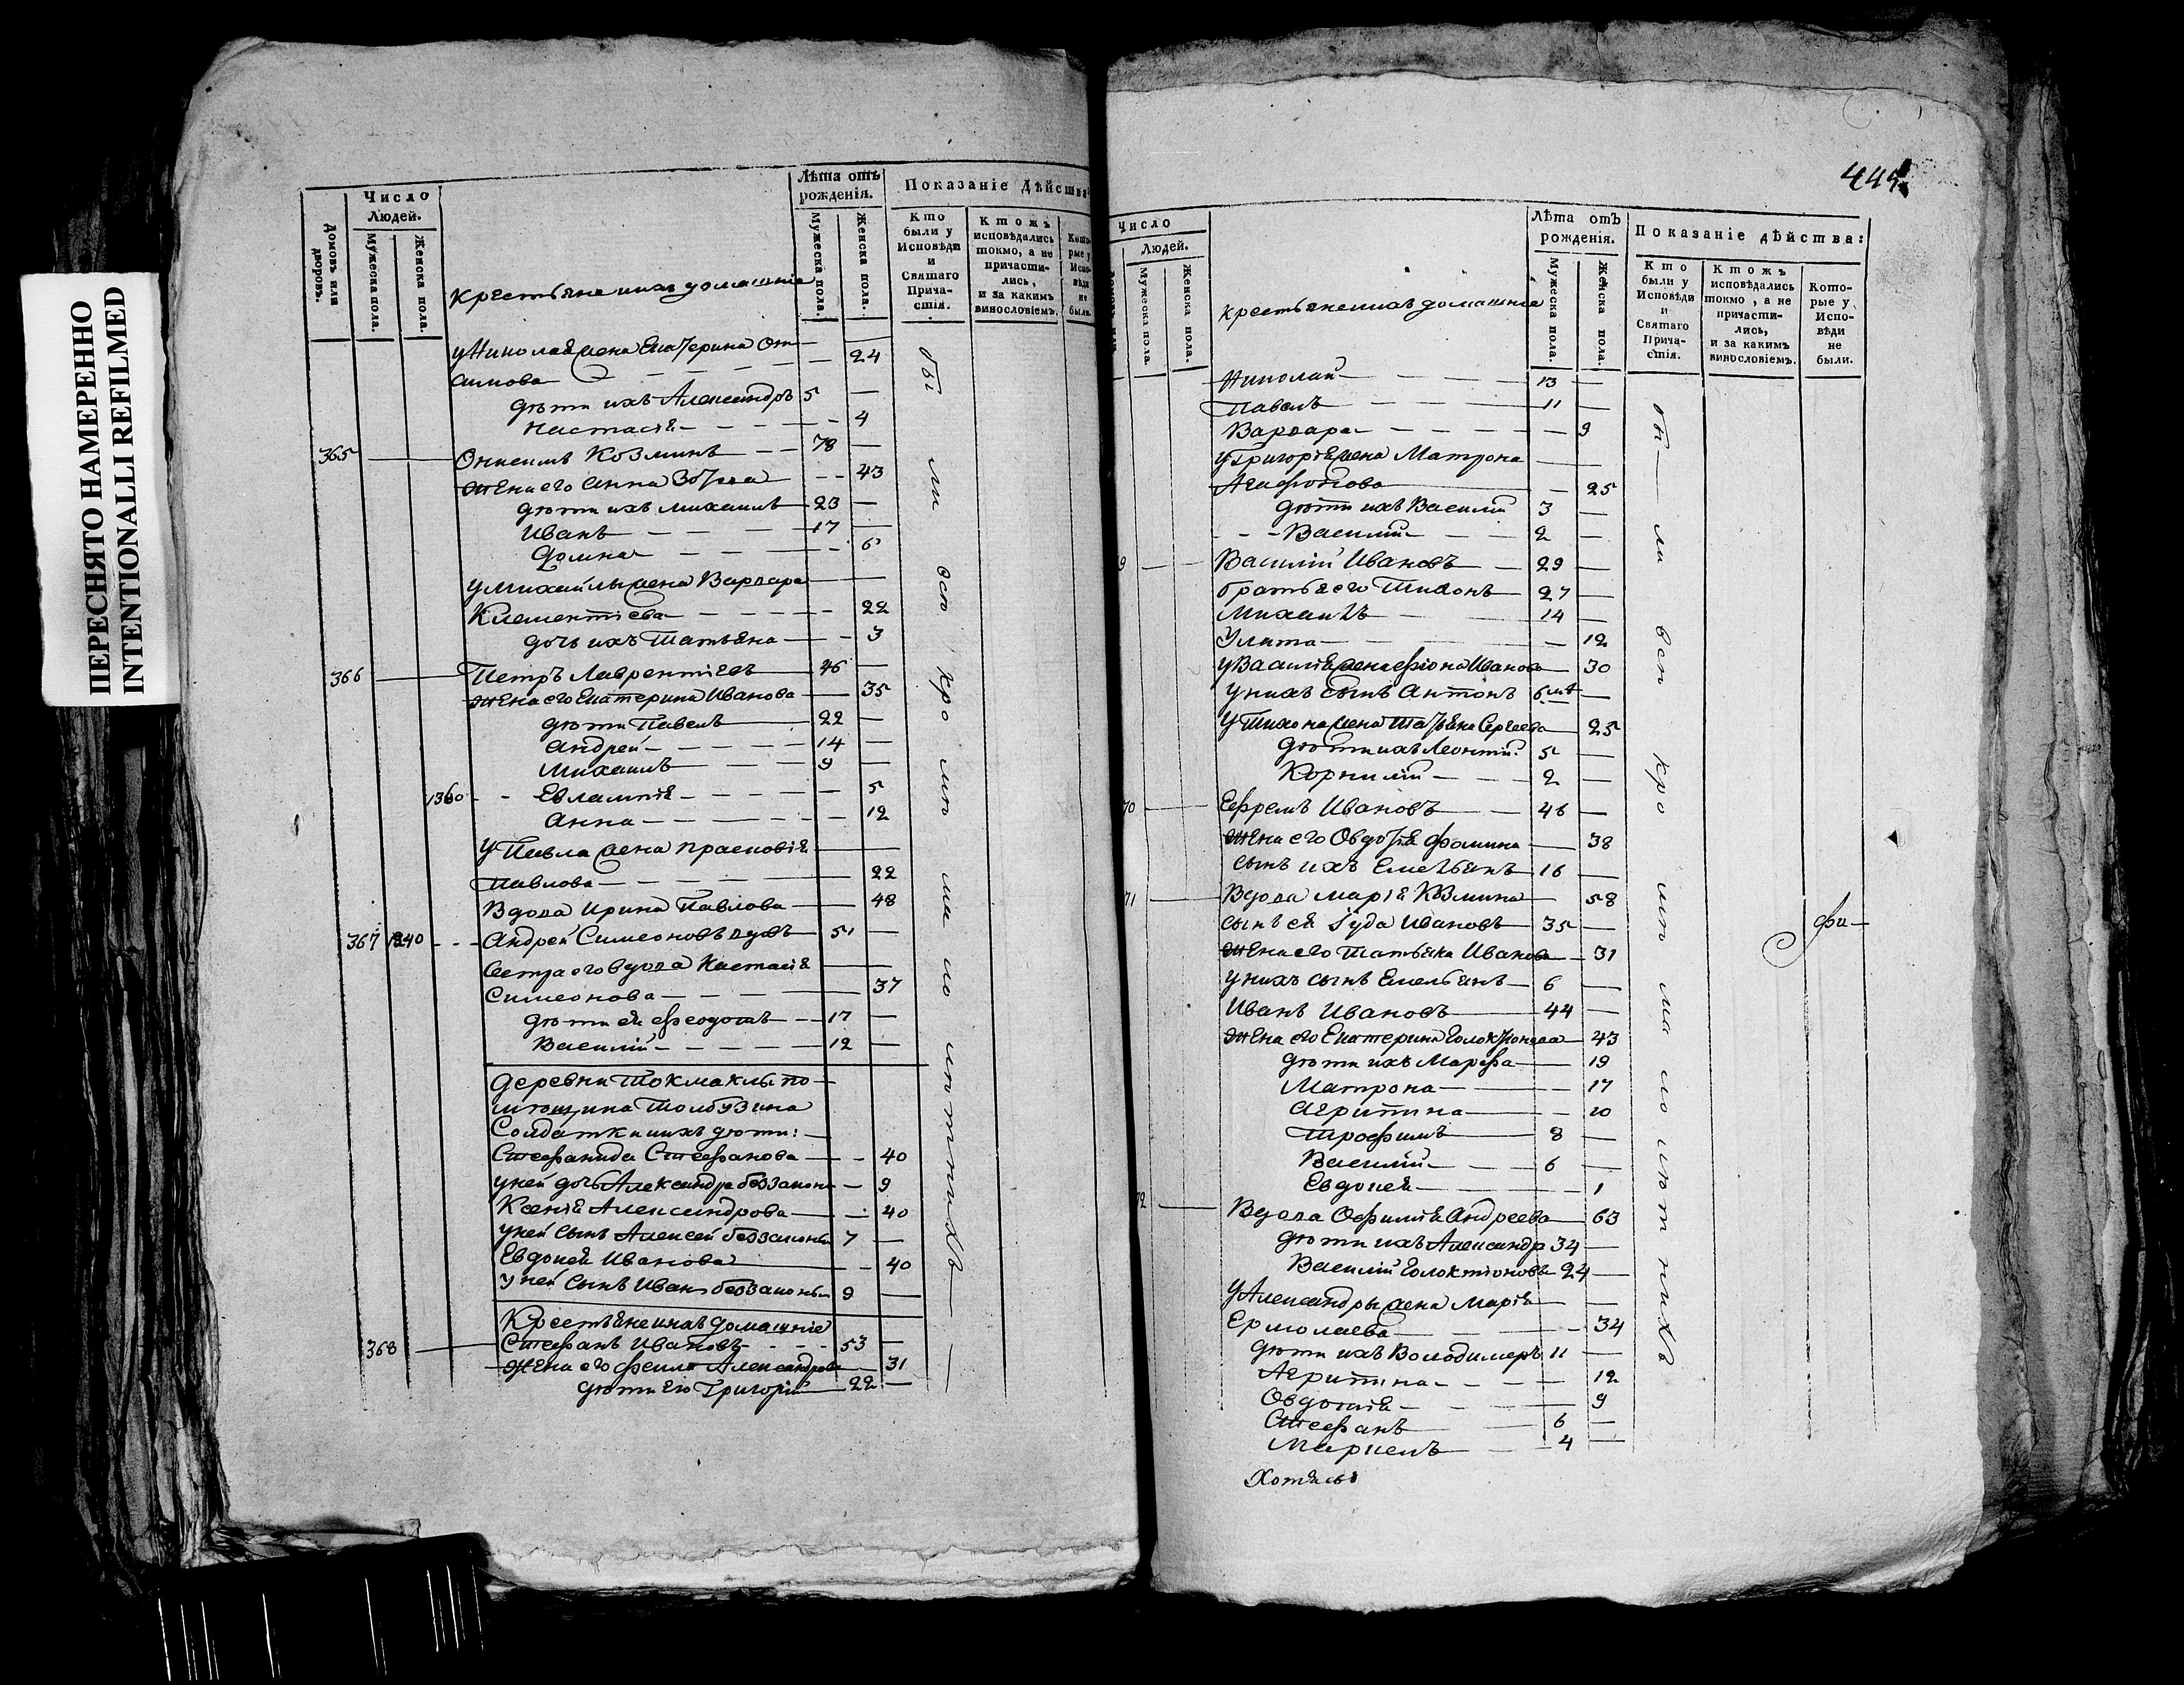 ПЕРЕСНЯТО НАМЕРЕННО
INTENTIONALLI REFILMED
Домовъ или дворовъ.
Число Людей.
Мужеска пола.
Женска пола.
Крестьяне и ихъ домашнiе
Лѣта отъ рожденiя.
Мужеска пола.
Женска пола.
Показанiе дѣйства
Кто были у Исповѣди и Святаго Прича-стiя.
Ктожъ исповѣдались токмо, а не причасти-лись, и за какимъ винословiемъ.
у Николая жена Екатерина
симова — 24
дѣти ихъ Александръ 5 —
Настасiя — 4
365 Онисимъ Козминъ 78 —
жена его Анна — 43
дѣти ихъ Михаилъ 23 —
Иванъ 17 —
Домна — 6
у Михайлы жена Варвара
Климентiева — 22
дочь ихъ Татьяна — 3
366 Петръ Лаврентiевъ 46 —
жена его Екатерина Иванова — 35
дѣти Павелъ 22 —
Андрей 14 —
Михаилъ 9 —
1360 Евлампiя — 5
Анна — 12
у Павла жена Прасковiя
Павлова — 22
Вдова Ирина Павлова — 48
367 1340 Андрей Симеоновъ вдовъ 51 —
Сестра его вдова Настасiя
Симеонова — 37
дѣти ея Феодотъ 17 —
Василiй 12 —
Деревни Токмаклы по-
мѣщика Толбузина
Солдатки и ихъ дѣти:
Стефанида Стефанова — 40
у ней дочь Александра беззаконн — 9
Ксенiя Александрова — 40
у ней сынъ Алексей беззаконны 7 —
Евдокея Иванова — 40
у ней сынъ Иванъ беззаконны 9 —
Крестьяне и ихъ домашнiе
368 Стефанъ Ивановъ 53 —
жена его Фекла Александрова — 31
дѣти его Григорiй 22 —
бы ли всп кро мп ма ло лѣтнихъ
444
Число
Людей.
Мужеска пола.
Женска пола.
крестьяне и ихъ домашнiе
Лѣта отъ рожденiя.
Мужеска пола.
Женска пола.
Показанiе дѣйства:
Кто были у Исповѣди и Святаго Прича-стiя.
Ктожъ исповѣдались токмо, а не причасти-лись, и за какимъ винословiемъ.
Кото-рые у Испо-вѣди не были.
Николай 13 —
Павелъ 11 —
Варвара — 9
у Григорiя жена Матрона
Агафонова — 25
дѣти ихъ Василiй 3 —
Василiй 2 —
9 Василiй Ивановъ 29 —
братья его Тихонъ 27 —
Михаилъ 14 —
Улита — 12
у Василiя жена Фiона Иванова — 30
у нихъ сынъ Антонъ 6 —
у Тихона жена Татьяна Сергеева — 25
дѣти ихъ Леонтiй 5 —
Корнилiй 2 —
70 Ефремъ Ивановъ 46 —
жена его Овдотiя Фомина — 38
сынъ ихъ Емельянъ 16 —
71 Вдова Марiя Козмина — 58
сынъ ея Iуда Ивановъ 35 —
жена его Татьяна Иванова — 31
у нихъ сынъ Емельянъ 6 —
Иванъ Ивановъ 44 —
жена его Екатерина Голактионова — 43
дѣти ихъ Марфа — 19
Матрона — 17
Агрипина — 10
Трофимъ 8 —
Василiй 6 —
Евдокея — 1
72 Вдова Офимiя Андреева — 63
дѣти ихъ Александр 34 —
Василiй Голоктiоновъ 24 —
у Александры жена Марiя
Ермолаева — 34
дѣти ихъ Володимеръ 11 —
Агрипина — 12
Овдотiя — 9
Стефанъ 6 —
Маркелъ 4 —
бы ли всп кро мп ма ло лѣт нихъ